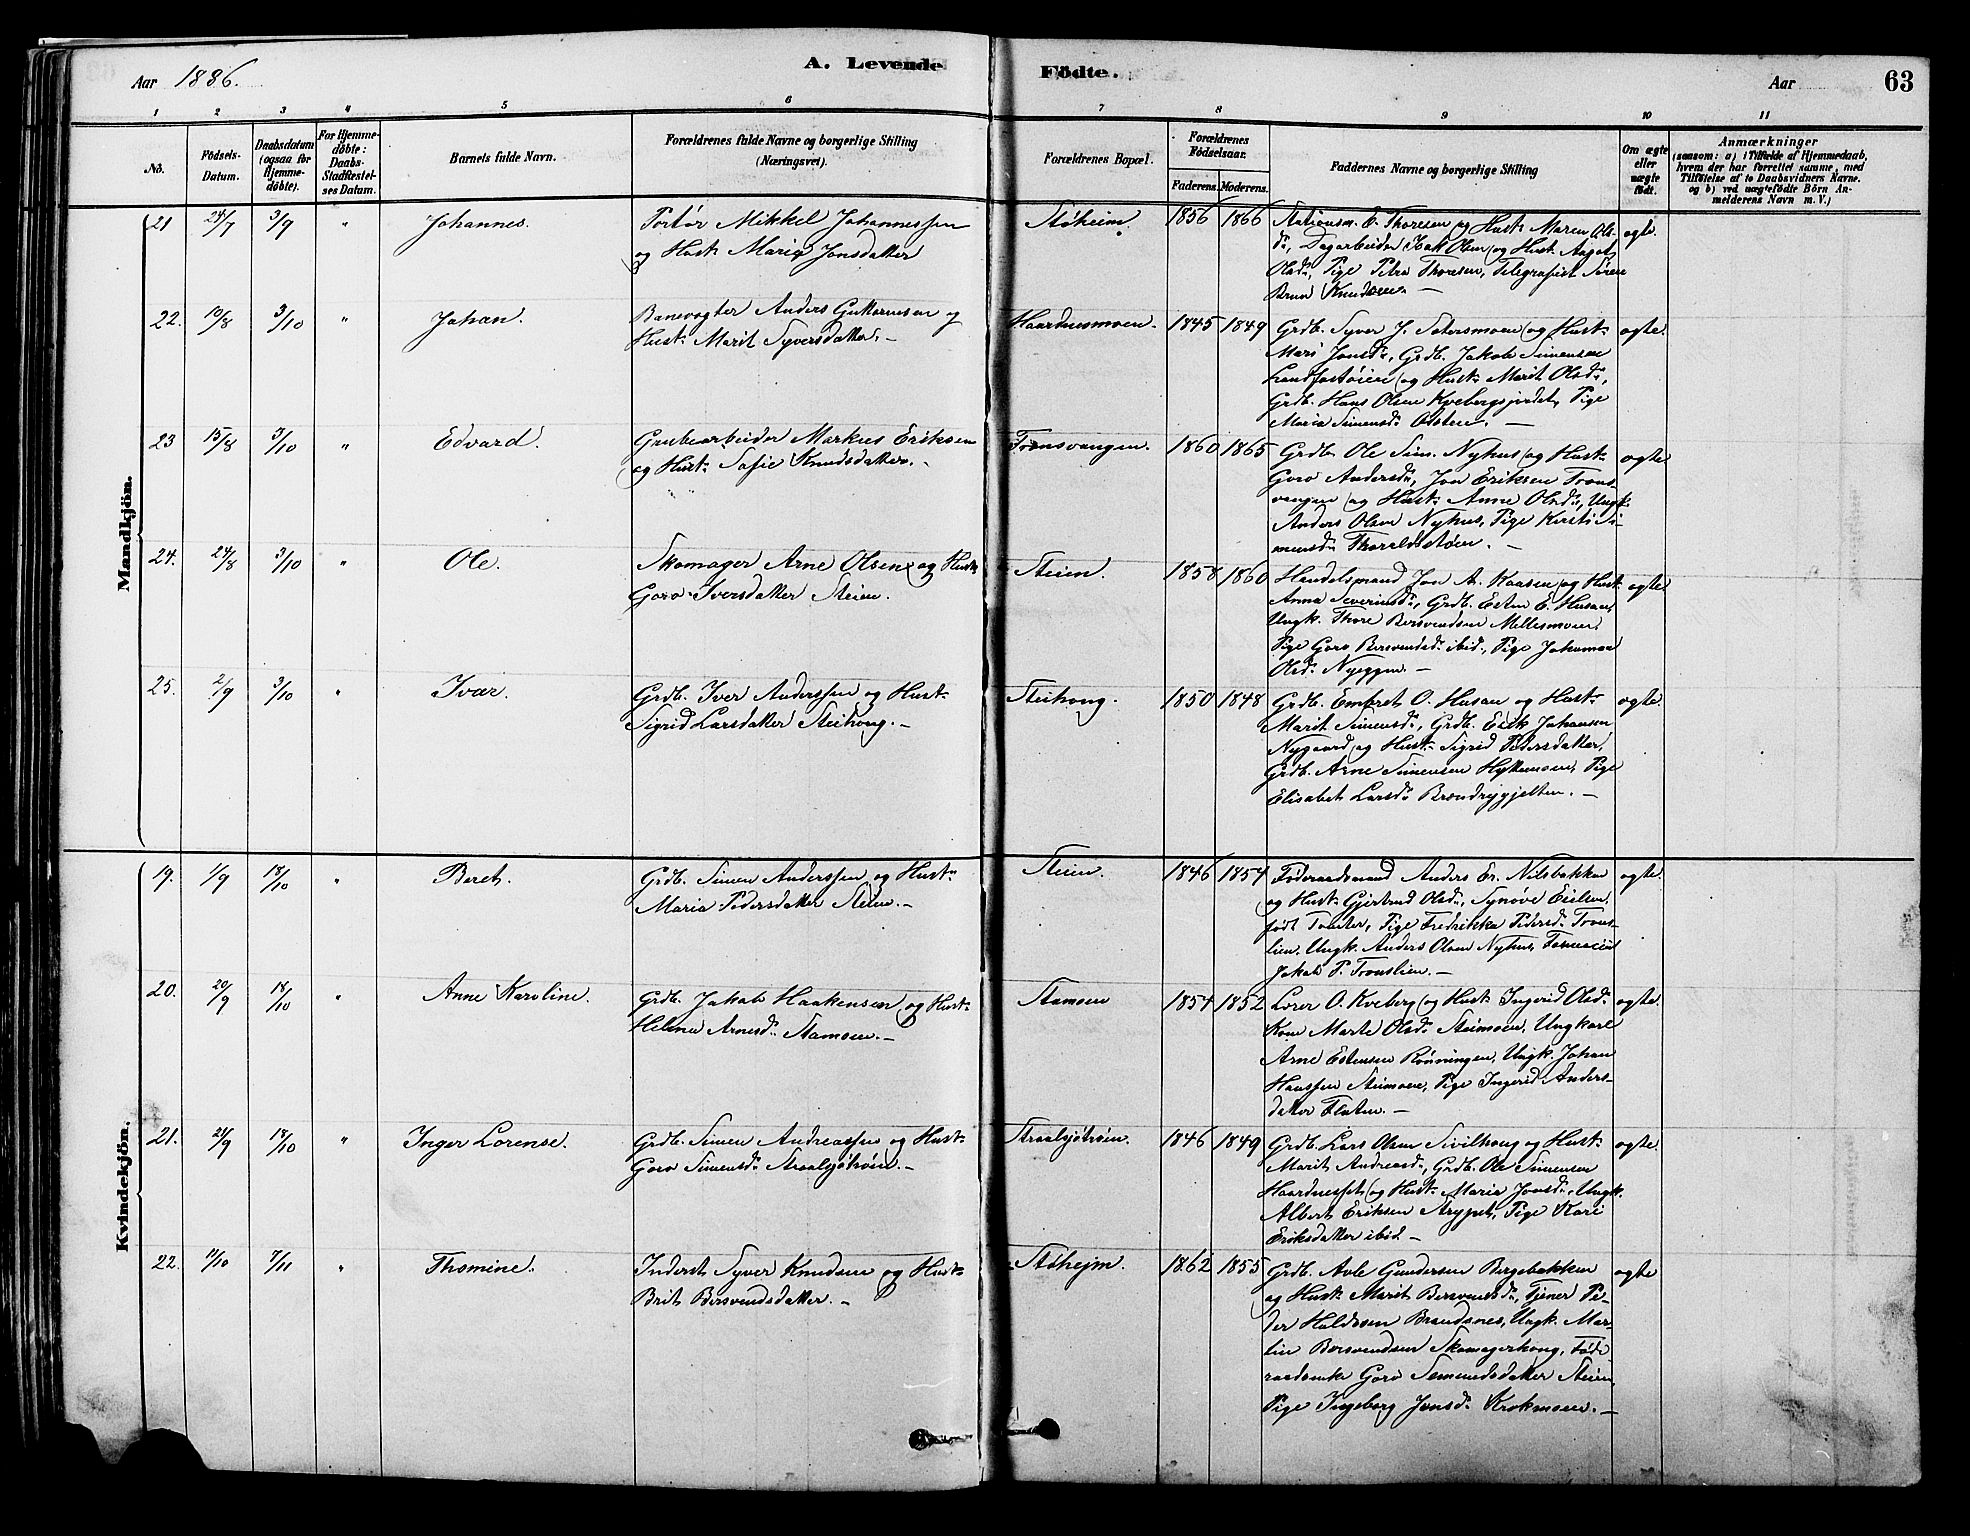 Aar 1886.
A. Levende Födte.
Aar
63
1 2 3 4 5 6 7 8 9 10 11
No.
Födsels-Datum.
Daabsdatum (ogsaa for Hjemmedöbte).
For Hjemmedöbte: Daabs-Stadfæstelses Datum.
Barnets fulde Navn.
Forældrenes fulde Navne og borgerlige Stilling (Næringsvei).
Forældrenes Bopæl.
Forældrenes Födselsaar.
Faderens. Moderens.
Faddernes Navne og borgerlige Stilling
Om ægte eller uægte födt.
Anmærkninger
(saasom: a) i Tilfælde af Hjemmedaab,
hvem der har forrettet samme, med
Tilföielse af to Daabsvidners Navne.
og b) ved uægtefödte Börn An-
melderens Navn m. V.)
Mandkjön.
21 24/7 3/9 " Johannes.
Portør Mikkel Johannessen
og Hust. Maria Jonsdatter
Støheim. 1856 1866
Stationsm. E. Thoresen og Hust. Maren Ols-
d., Dagarbeider Olsen og Hust. Aagot
Olsd., Pige Petra Thoresen, Telegrafist Sören
Brun Knudsen. —
ægte.
22. 10/8 3/10 " Johan.
Banevogter Anders Guttormsen og
Hust. Marit Syversdatter. —
Haardnesmoen. 1845 1849
Grdb. Syver J. Setersmoen og Hust.
Mari Jonsd., Grdb. Jakob Simensen
Landfastøien og Hust. Marit Olsd.,
Grdb. Hans Olsen Kvebergsjordet, Pige
Maria Simensd. —
ægte.
23 15/8 3/10 " Edvard.
Grubearbeider Markus Eriksen
og Hust. Sofie Knudsdatter. —
Tronsvangen 1860 1865
Grdb. Ole Sim. Nyhus og Hust.
Goro Andersd., Jon Eriksen Trons-
vangen og Hust. Anne Olsd., Ungk.
Anders Olsen Nyhus, Pige Kirsti Si-
mensd. Thoraldstøen. —
ægte
24. 24/8 3/10 " Ole.
Skomager Arne Olsen og Hust.
Goro Iversdatter Steien.
Steien. 1858 1860
Handelsmand Jon A. Kaasen og Hust.
Anna Severinsd., Grdb. Esten E. Husan,
Ungk. Thore Bersvendsen Mellesmoen,
Pige Goro Bersvendsd. ibid., Pige Johanna
Olsd. Nyeggen. —
ægte.
25. 2/9 3/10 " Ivar.
Grdb. Iver Anderssen og Hust.
Sigrid Larsdatter Steihaug. —
Steihaug. 1850 1848
Grdb. Embret O. Husan og Hust.
Marit Simensd., Grdb. Erik Johansen
Nygaard og Hust. Sigrid Pedersdatter,
Grdb. Arne Simensen Hyttemoen, Pige
Elisabet Larsd. Brendryggjelten. —
ægte.
Kvindekjön.
19. 1/9 18/10 " Beret.
Grdb. Simen Anderssen og Hust.
Maria Pedersdatter Steien. —
Steien. 1846 1854
Føderaadsmand Anders Er. Nilsbakken
og Hust. Gjertrud Olsd., Synøve Eielsen,
født Tomter, Pige Fredrikka Pedersd. Trons-
lien, Ungk. Anders Olsen Nyhus,
Jakob P. Tronslien. —
ægte.
20. 20/9 18/10 " Anne Karoline.
Grdb. Jakob Haakensen og Hust.
Helena Arnesd. Stamoen. —
Stamoen 1854 1852
O. Kveberg og Hust. Ingerid Olsd.
Kone Marte Olsd. Steimoen, Ungkarl
Arne Estensen Rönningen, Ungk. Johan
Hanssen Steimoen, Pige Ingerid Anders-
datter Flaten. —
ægte.
21. 21/9 18/10 " Inger Lorense.
Grdb. Simen Andreassen og Hust.
Goro Simensd. Straalsjötrøen. —
Straalsjötrøen. 1846 1849
Grdb. Lars Olsen Sivilhaug og Hust.
Marit Andreasd., Grdb. Ole Simensen
Haardnesset og Hust. Maria Jonsd., Ungk.
Albert Eriksen Strypet, Pige Kari
Eriksdatter ibid —
ægte.
22. 11/10 7/11 " Thomine.
Inderst Syver Knudsen og Hust.
Brit Bersvendsdatter. —
Støhejm. 1862 1855
Grdb. Avle Gundersen Bergebakken
og Hust. Marit Bersvendsd., Tjener Pe-
der Haldosen Brandsnes, Ungk. Mar-
tin Bersvendsen Skomagerhaug, Føde-
raadsenke Goro Semundsdatter Steien,
Pige Ingeborg Jonsd. Krokmoen. —
ægte